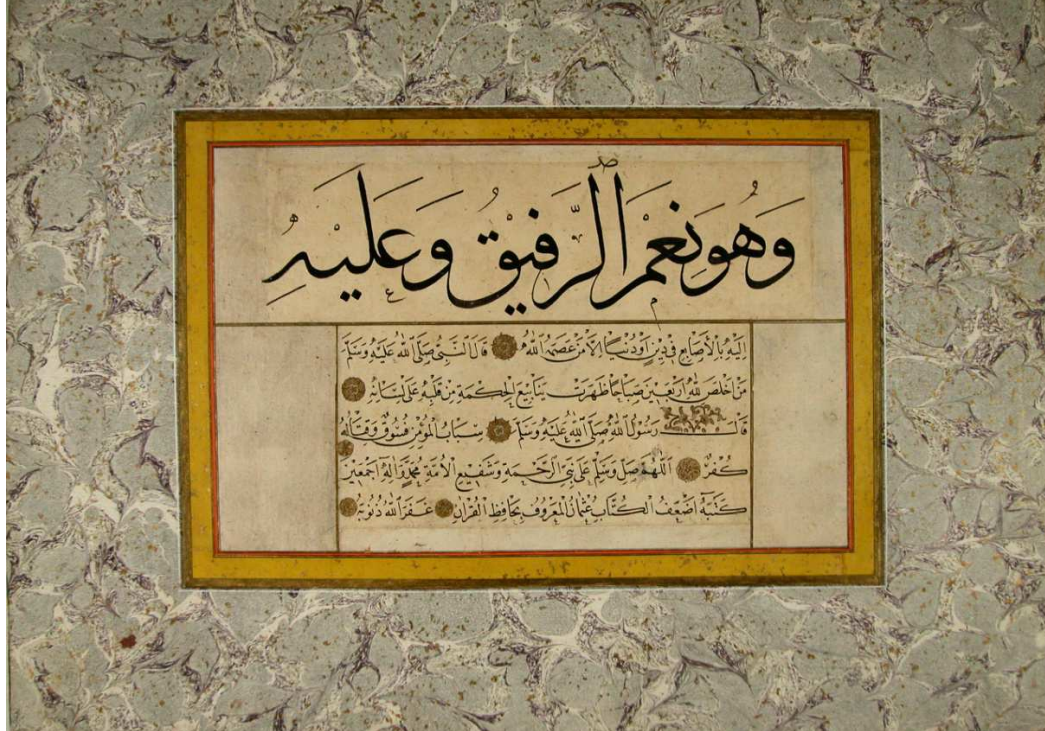 وَهُوَ نِعْمَ الرَّفِيْقُ وَعَلَيْهِ
اِلَيْهِ بِالْاَصَابِعِ فِي دِيْنٍ اَوْ دُنْيَا اِلَّا مَنْ عَصَمَهُ اللهُ قَالَ النَّبِيُّ صَلَّى اللهُ عَلَيْهِ وَسَلَّمَ
مَنْ اَخْلَصَ لِلّٰهِ اَرْبَعِيْنَ صَبَاحًا ظَهَرَتْ يَنَابِيْعُ الْحِكْمَةِ مِنْ قَلْبِهِ عَلَى لِسَانِهِ
قَالَ رَسُوْلُ اللهِ صَلَّى اللهُ عَلَيْهِ وَسَلَّمَ سِبَابُ الْمُؤْمِنِ فُسُوْقٌ وَقِتَالُهُ
كُفْرٌ اَللّٰهُمَّ صَلِّ وَسَلِّمْ عَلَى نَبِيِّ الرَّحْمَةِ وَشَفِيْعِ الْاُمَّةِ مُحَمَّدٍ وَاٰلِهِ اَجْمَعِيْنَ
كَتَبَهُ اَضْعَفُ الْكُتَّابِ عُثْمَانُ الْمَعْرُوْفُ بِحَافِظِ الْقُرْاٰنِ غَفَرَ اللهُ ذُنُوْبَهُ